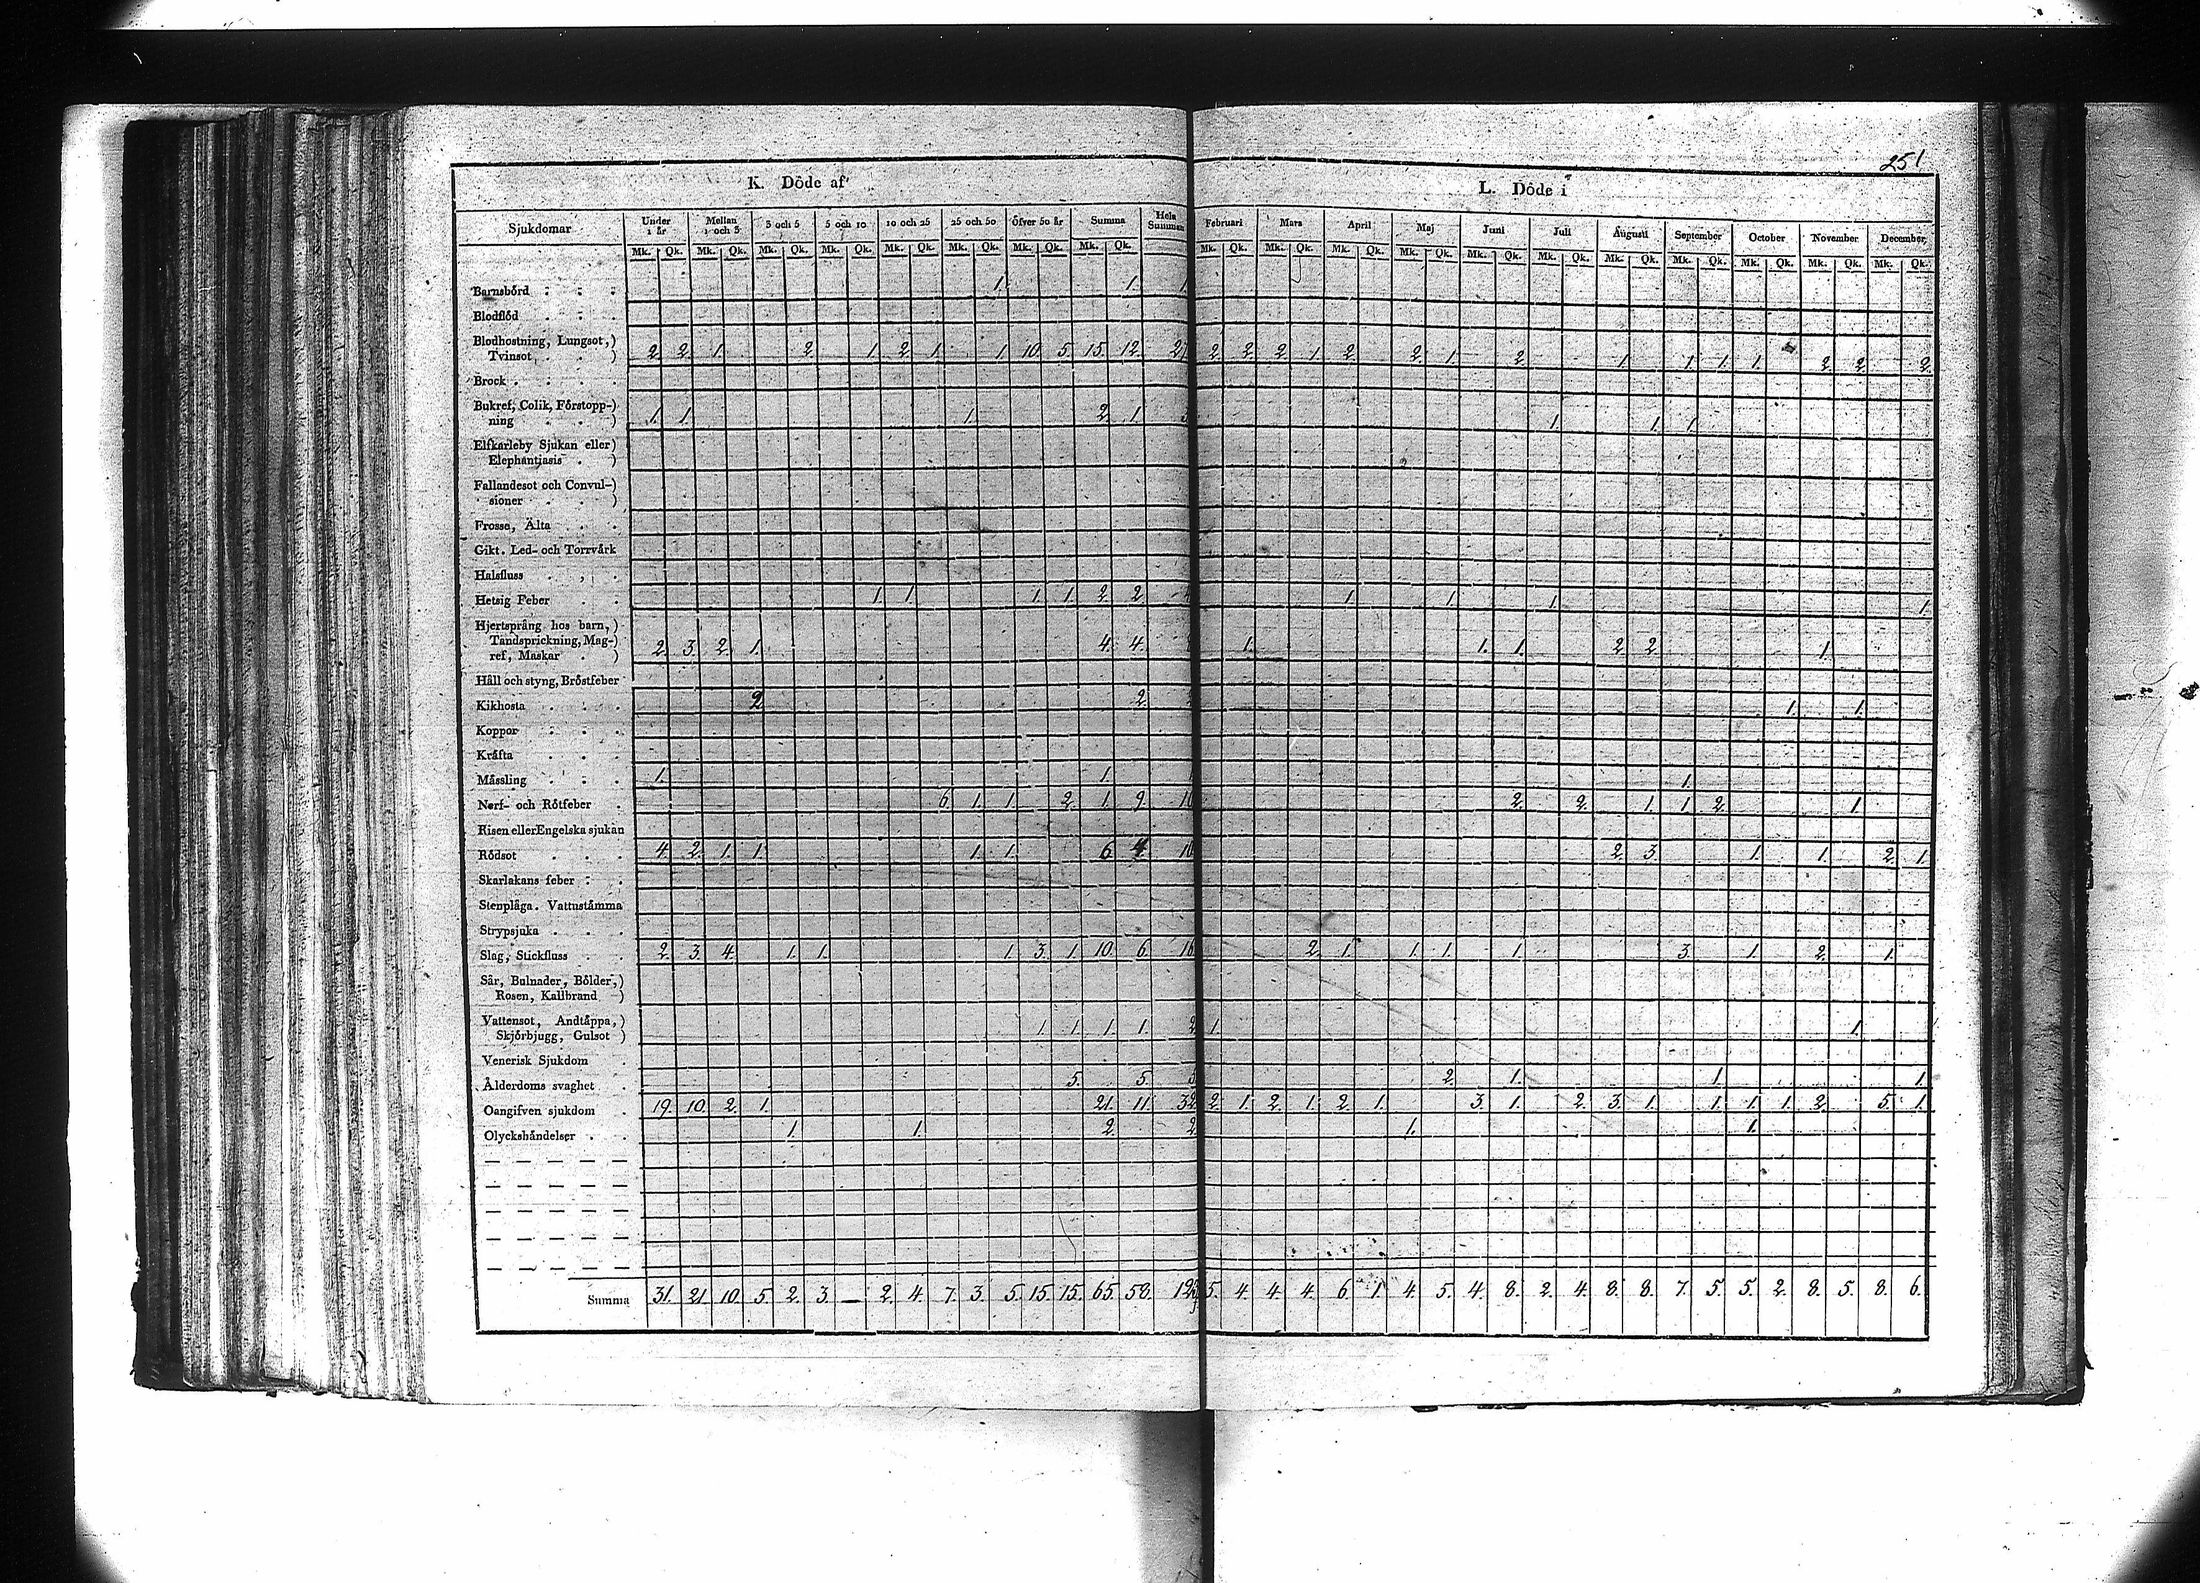 251
K. Döde af
L. Döde i
Sjukdomar Under 1 år Mellan 1 och 3 3 och 5 5 och 10 10 och 25 25 och 50 Öfver 50 år Summa Hela Summan Februari Mars April Maj Juni Juli Augusti September October November December
Mk. Qk. Mk. Qk. Mk. Qk. Mk. Qk. Mk. Qk. Mk. Qk. Mk. Qk. Mk. Qk. Mk. Qk. Mk. Qk. Mk. Qk. Mk. Qk. Mk. Qk. Mk. Qk. Mk. Qk. Mk. Qk. Mk. Qk. Mk. Qk. Mk. Qk.
Barnsbörd 1. 1. 1
Blodflöd
Blodhostning, Lungsot,)
Tvinsot, ) 2. 2. 1. 2. 1. 2. 1. 1. 10. 5. 15. 12. 2. 2. 2. 1. 2. 2. 1. 2. 1. 1. 1. 1. 2. 2. 2.
Brock
Bukref, Colik, Förstopp-)
ning ) 1. 1. 1. 2. 1. 1. 1. 1.
Elfkarleby Sjukan eller)
Elephantiasis )
Fallandesot och Convul-)
sioner )
Frossa, Älta
Gikt. Led- och Torrvärk
Halsfluss
Hetsig Feber 1. 1. 1. 1. 2. 2. 1. 1. 1. 1.
Hjertsprång hos barn,)
Tandsprickning, Mag-)
ref, Maskar ) 2. 3. 2. 1. 4. 4. 1. 1. 1. 2. 2. 1.
Håll och styng, Bröstfeber
Kikhosta 2 2. 1. 1.
Koppor
Kräfta
Mässling 1. 1. 1.
Nerf- och Rötfeber 6. 1. 1. 2. 1. 9. 10 2. 2. 1. 1. 2. 1.
Risen eller Engelska sjukan
Rödsot 4. 2. 1. 1. 1. 1. 6. 4. 10 2. 3. 1. 1. 2. 1.
Skarlakans feber
Stenplåga. Vattustämma
Strypsjuka
Slag, Stickfluss 2. 3. 4. 1. 1. 1. 3. 1. 10. 6. 16 2. 1. 1. 1. 1. 3. 1. 2. 1.
Sår, Bulnader, Bölder,)
Rosen, Kallbrand )
Vattensot, Andtäppa,)
Skjörbjugg, Gulsot ) 1. 1. 1. 1. 2 1. 1.
Venerisk Sjukdom
Ålderdoms svaghet 5. 5. 5 2. 1. 1. 1.
Oangifven sjukdom 19. 10. 2. 1. 21. 11. 32. 2. 1. 2. 1. 2. 1. 3. 1. 2. 3. 1. 1. 1. 1. 2. 5. 1.
Olyckshändelser 1. 1. 2. 2. 1. 1.
Summa 31. 21. 10. 5. 2. 3. — 2. 4. 7. 3. 5. 15. 15. 65. 58. 123 5. 4. 4. 4. 6. 1 4. 5. 4. 8. 2. 4. 8. 8. 7. 5. 5. 2. 8. 5. 8. 6.